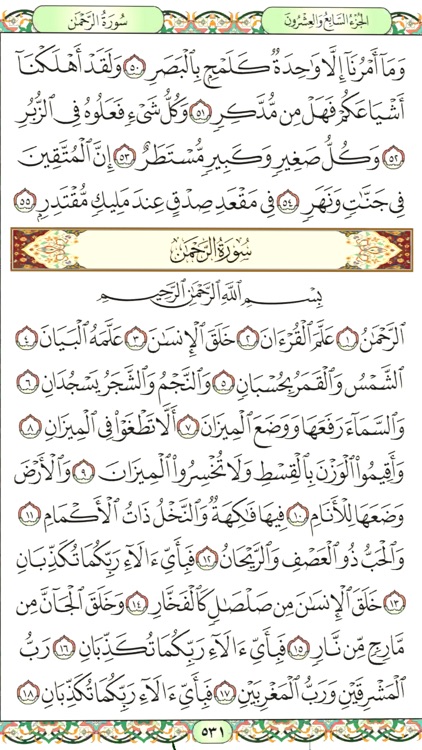 الجزء السابع والعشرون
سورة الرحمن
وَمَآ أَمْرُنَآ إِلَّا وَٰحِدَةٌ كَلَمْحِۭ بِٱلْبَصَرِ ٥٠ وَلَقَدْ أَهْلَكْنَآ
أَشْيَاعَكُمْ فَهَلْ مِن مُّدَّكِرٍ ٥١ وَكُلُّ شَىْءٍ فَعَلُوهُ فِى ٱلزُّبُرِ
٥٢ وَكُلُّ صَغِيرٍ وَكَبِيرٍ مُّسْتَطَرٌ ٥٣ إِنَّ ٱلْمُتَّقِينَ
فِى جَنَّٰتٍ وَنَهَرٍ ٥٤ فِى مَقْعَدِ صِدْقٍ عِندَ مَلِيكٍ مُّقْتَدِرٍۭ ٥٥
سورة الرحمن
بِسْمِ ٱللَّهِ ٱلرَّحْمَٰنِ ٱلرَّحِيمِ
ٱلرَّحْمَٰنُ ١ عَلَّمَ ٱلْقُرْءَانَ ٢ خَلَقَ ٱلْإِنسَٰنَ ٣ عَلَّمَهُ ٱلْبَيَانَ ٤
ٱلشَّمْسُ وَٱلْقَمَرُ بِحُسْبَانٍ ٥ وَٱلنَّجْمُ وَٱلشَّجَرُ يَسْجُدَانِ ٦
وَٱلسَّمَآءَ رَفَعَهَا وَوَضَعَ ٱلْمِيزَانَ ٧ أَلَّا تَطْغَوْا۟ فِى ٱلْمِيزَانِ ٨
وَأَقِيمُوا۟ ٱلْوَزْنَ بِٱلْقِسْطِ وَلَا تُخْسِرُوا۟ ٱلْمِيزَانَ ٩ وَٱلْأَرْضَ
وَضَعَهَا لِلْأَنَامِ ١٠ فِيهَا فَٰكِهَةٌ وَٱلنَّخْلُ ذَاتُ ٱلْأَكْمَامِ ١١
وَٱلْحَبُّ ذُو ٱلْعَصْفِ وَٱلرَّيْحَانُ ١٢ فَبِأَىِّ ءَالَآءِ رَبِّكُمَا تُكَذِّبَانِ
١٣ خَلَقَ ٱلْإِنسَٰنَ مِن صَلْصَٰلٍ كَٱلْفَخَّارِ ١٤ وَخَلَقَ ٱلْجَآنَّ مِن
مَّارِجٍ مِّن نَّارٍ ١٥ فَبِأَىِّ ءَالَآءِ رَبِّكُمَا تُكَذِّبَانِ ١٦ رَبُّ
ٱلْمَشْرِقَيْنِ وَرَبُّ ٱلْمَغْرِبَيْنِ ١٧ فَبِأَىِّ ءَالَآءِ رَبِّكُمَا تُكَذِّبَانِ ١٨
٥٣١